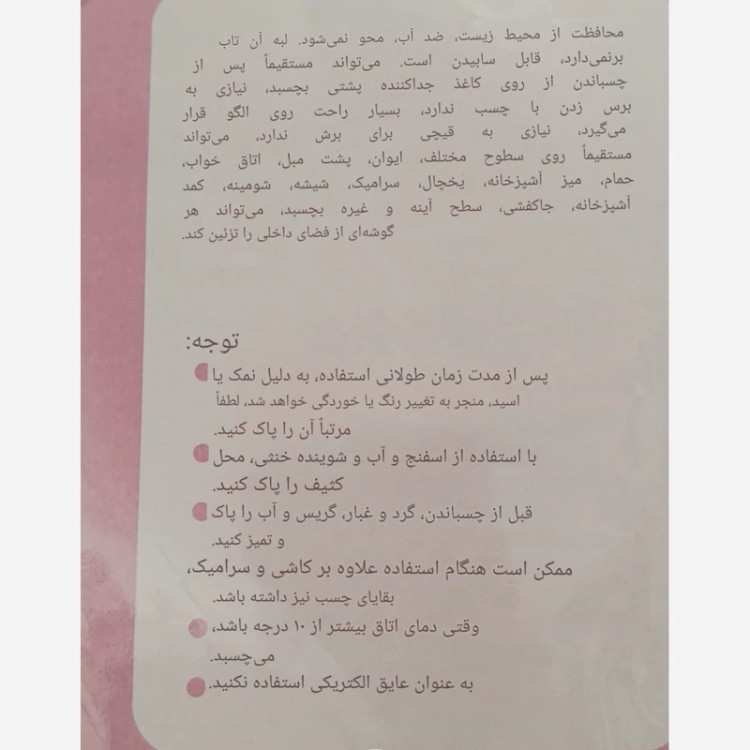 محافظت از محیط زیست، ضد آب، محو نمی‌شود. لبه آن تاب
برنمی‌دارد، قابل سابیدن است. می‌تواند مستقیماً پس از
چسباندن از روی کاغذ جداکننده پشتی بچسبد، نیازی به
برس زدن با چسب ندارد، بسیار راحت روی الگو قرار
می‌گیرد، نیازی به قیچی برای برش ندارد، می‌تواند
مستقیماً روی سطوح مختلف، ایوان، پشت مبل، اتاق خواب،
حمام، میز آشپزخانه، یخچال، سرامیک، شیشه، شومینه، کمد
آشپزخانه، جاکفشی، سطح آینه و غیره بچسبد، می‌تواند هر
گوشه‌ای از فضای داخلی را تزئین کند.
توجه:
پس از مدت زمان طولانی استفاده، به دلیل نمک یا
اسید، منجر به تغییر رنگ یا خوردگی خواهد شد، لطفاً
مرتباً آن را پاک کنید.
با استفاده از اسفنج و آب و شوینده خنثی، محل
کثیف را پاک کنید.
قبل از چسباندن، گرد و غبار، گریس و آب را پاک
و تمیز کنید.
ممکن است هنگام استفاده علاوه بر کاشی و سرامیک،
بقایای چسب نیز داشته باشد.
وقتی دمای اتاق بیشتر از ۱۰ درجه باشد،
می‌چسبد.
به عنوان عایق الکتریکی استفاده نکنید.